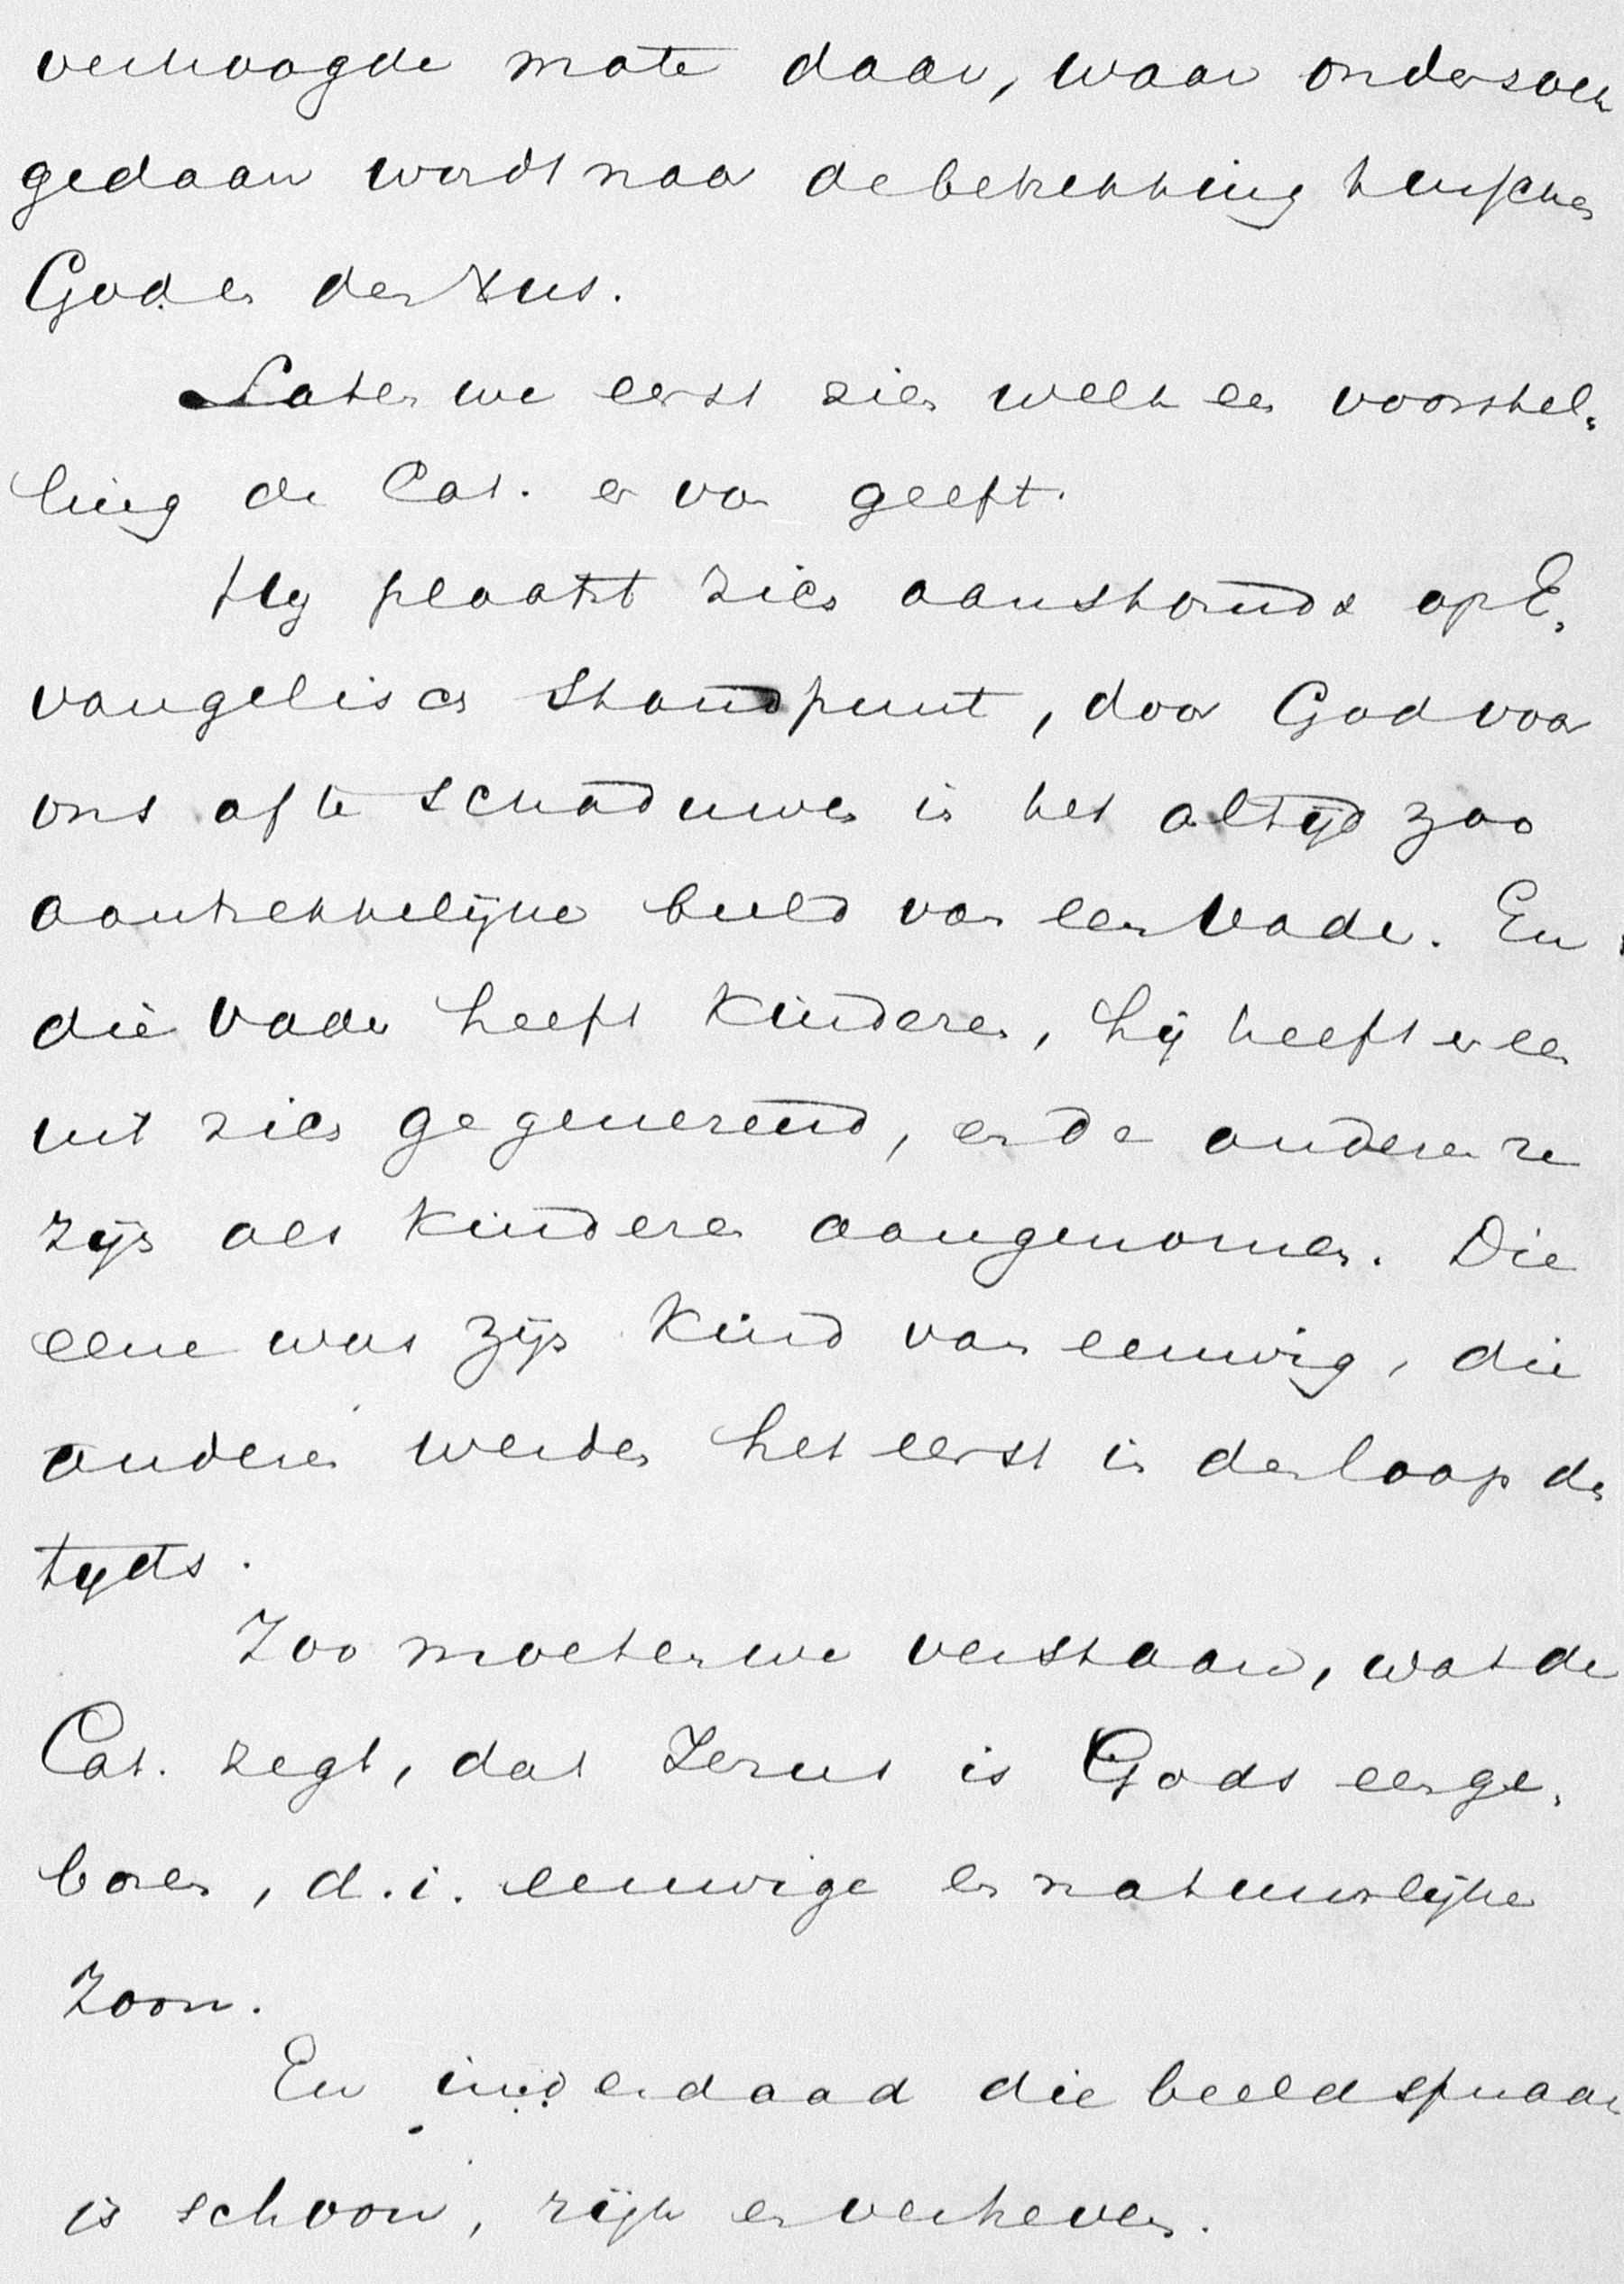 verhoogde mate daar, waar ondersoek
gedaan wordt naar de betrekking tusschen
God en den Zns.
Laten we eerst zien welk een voorstel„
ling de Cat. er van geeft.
Hy plaatst zich aanstonds op E„
vangelisch standpunt, door God voor
ons af te schaduwen in het altijd zoo
aantrekkelijke beeld van een Vader. En
die Vader heeft kinderen, hij heeft er een
uit zich gegenereerd, en de anderen ze
zijn als kinderen aangenomen. Die
eene was zijn kind van eeuwig, die
anderen werden het eerst in den loop des
tyds.
Zoo moeten we verstaan, wat de
Cat. zegt, dat Jezus is Gods eenge„
boren, d.i. eeuwige en natuurlijke
Zoon.
En inderdaad die beeldspraak
is schoon, rijk en verheven.